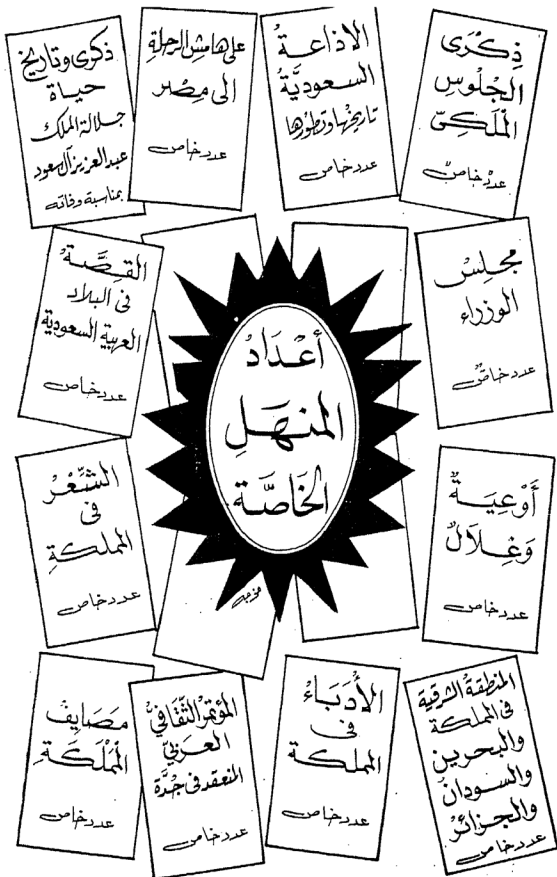 ذِكْرَى
الجُلُوسِ
المَلَكِىّ
عدد خاص
الاذاعة
السعودية
تاريخها وتطورها
عدد خاص
على هامش الرحلة
الى مِصْر
عدد خاص
ذكرى وتاريخ
حياة
جلالة الملك
عبد العزيز آل سعود
بمناسبة وفاته
مجلِس
الوزراء
عدد خاص
القصَّة
فى البلاد
العربية السعودية
عدد خاص
أعْدَادُ
المنهَلِ
الخَاصَّة
أَوْعِيَةٌ
وَغِلَالٌ
عدد خاص
الشِّعْر
فى
المملكةِ
عدد خاص
المنطقة الشرقية
فى المملكة
والبحرين
والسودان
والجزائر
عدد خاص
الأُدَبَاءُ
فى
المملكة
عدد خاص
المؤتمر الثقافي
العربيّ
المنعقد فى جُدَّة
عدد خاص
مَصَايِف
المَمْلَكَةِ
عدد خاص